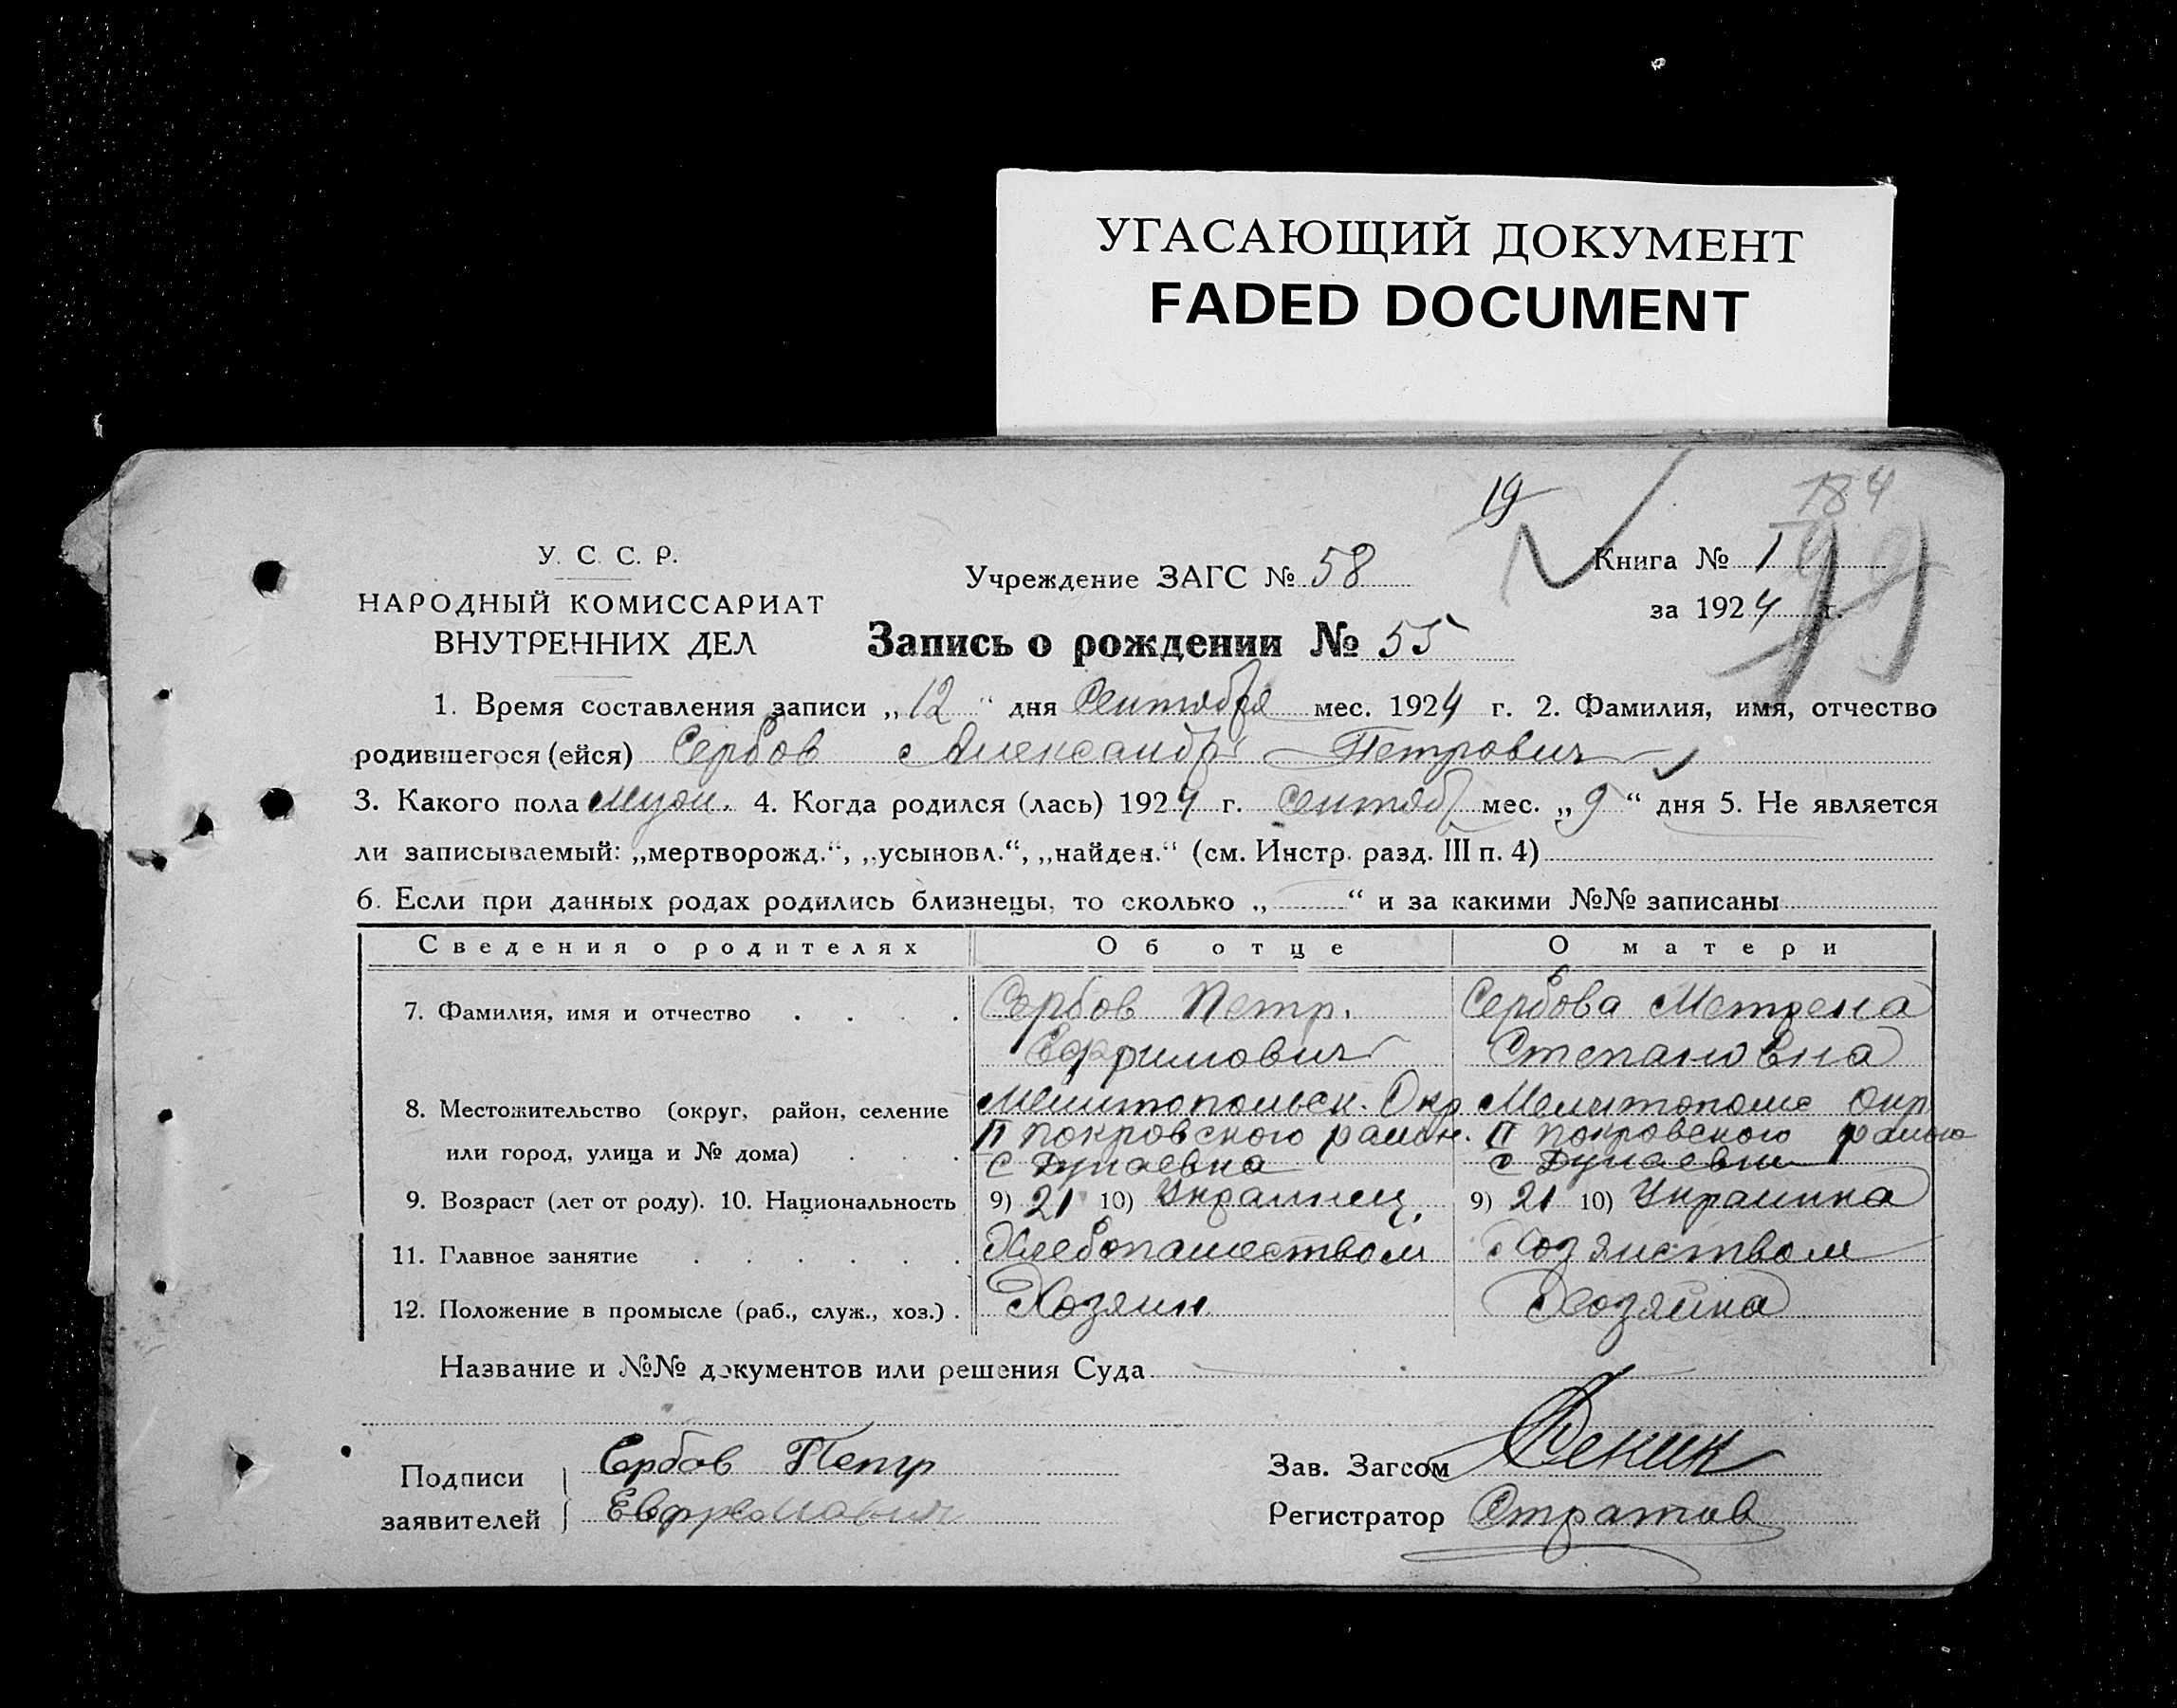 УГАСАЮЩИЙ ДОКУМЕНТ
FADED DOCUMENT
19
184
У. С. С. Р.
НАРОДНЫЙ КОМИССАРИАТ
ВНУТРЕННИХ ДЕЛ
Учреждение ЗАГС № 58
Книга № 1
за 1924 г.
Запись о рождении № 55
1. Время составления записи „12“ дня Сентября мес. 1924 г. 2. Фамилия, имя, отчество
родившегося (ейся) Сербов Александр Петрович
3. Какого пола Муж. 4. Когда родился (лась) 1924 г. Сентяб мес. „9“ дня 5. Не является
ли записываемый: „мертворожд.“, „усыновл.“, „найден.“ (см. Инстр. разд. III п. 4)
6. Если при данных родах родились близнецы, то сколько „ “ и за какими №№ записаны
Сведения о родителях Об отце О матери
7. Фамилия, имя и отчество Сербов Петр. Сербова Метрена
Ефримович Степановна
8. Местожительство (округ, район, селение Мелитопольск. Окр Мелитополс Окр
или город, улица и № дома) II Покровского район. II Покровского район
с Дунаевка с Дунаевки
9. Возраст (лет от роду). 10. Национальность 9) 21 10) Украинец, 9) 21 10) Украинка
11. Главное занятие Хлебопашеством Хозяиством
12. Положение в промысле (раб., служ., хоз.) Хозяин Хозяйка
Название и №№ документов или решения Суда
Подписи заявителей Сербов Петр
Зав. Загсом Деник
Регистратор Стратов